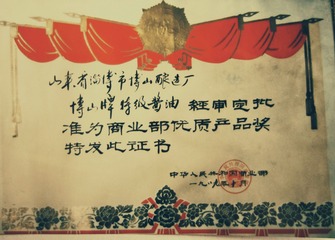 山东省淄博市博山酿造厂
博山牌特级酱油 经审定批
准为商业部优质产品奖
特发此证书
中华人民共和国商业部
一九八九年十月